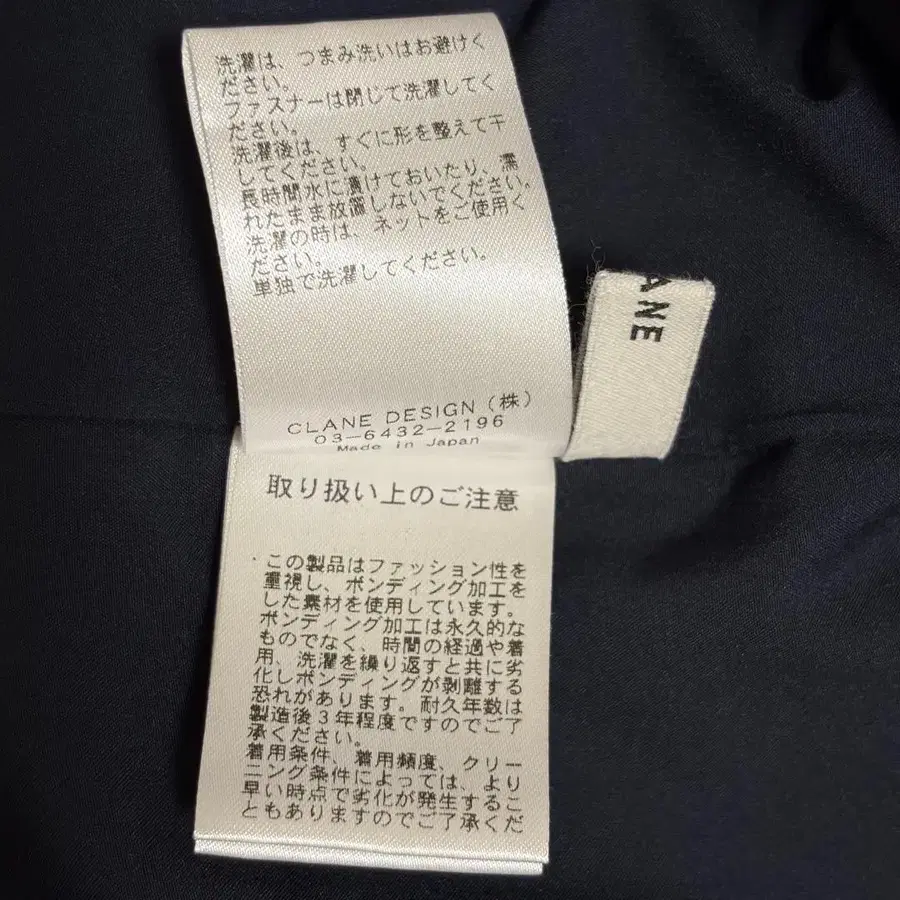 洗濯は、つまみ洗いはお避けく
ださい。
ファスナーは閉じて洗濯してく
ださい。
洗濯後は、すぐに形を整えて干
してください。
長時間水に漬けておいたり、濡
れたまま放置しないでください。
洗濯の時は、ネットをご使用く
ださい。
単独で洗濯してください。
ANE
CLANE DESIGN (株)
03-6432-2196
Made in Japan
取り扱い上のご注意
・この製品はファッション性を
重視し、ボンディング加工を
した素材を使用しています。
ボンディング加工は永久的な
ものでなく、時間の経過や着
用、洗濯を繰り返すと共に劣
化しボンディングが剥離する
恐れがあります。耐久年数は
製造後3年程度ですのでご了
承ください。
着用条件、着用頻度、クリー
ニング条件によっては、より
早い時点で劣化が発生するこ
ともありますのでご了承くだ